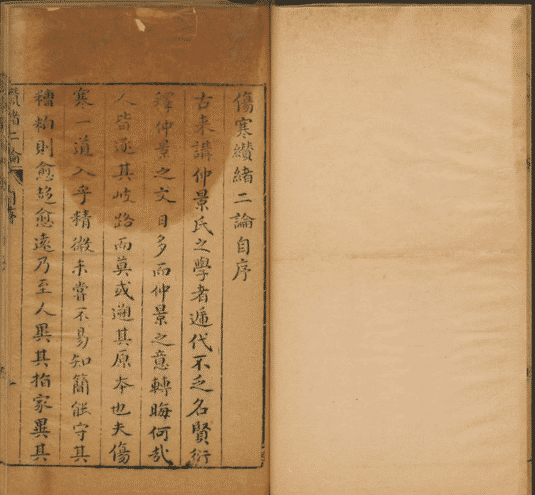 傷寒纘緒二論自序
古來講仲景氏之學者遞代不乏名賢衍
釋仲景之文日多而仲景之意轉晦何哉
人皆逐其岐路而莫或遡其原本也夫傷
寒一道入乎精微未嘗不易知簡能守其
糟粕則愈趍愈遠乃至人異其指家異其
纘緒二論
自序